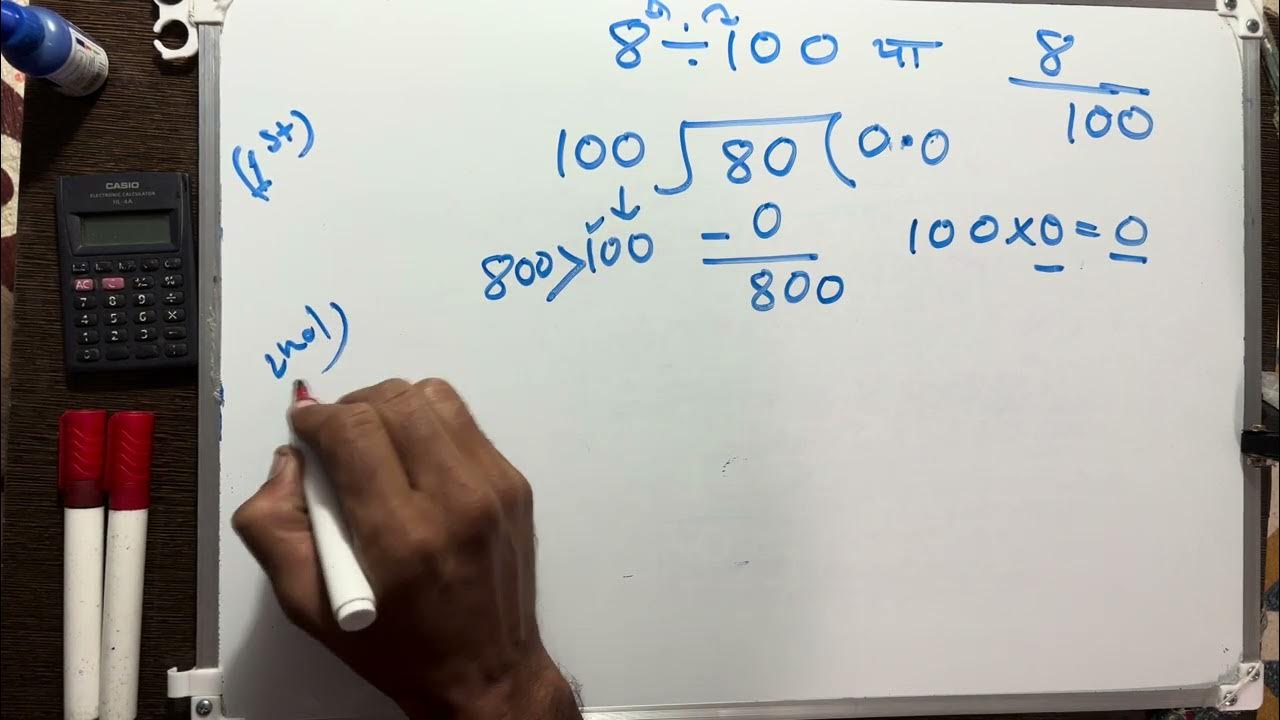 8 ÷ 100 या 8/100
(1st)
100 ⟌ 80 ( 0.0
800 > 100
- 0
100 × 0 = 0
800
2nd)
CASIO
ELECTRONIC CALCULATOR
HL-4A
AC
7 8 9 ÷
4 5 6 ×
1 2 3 -
0